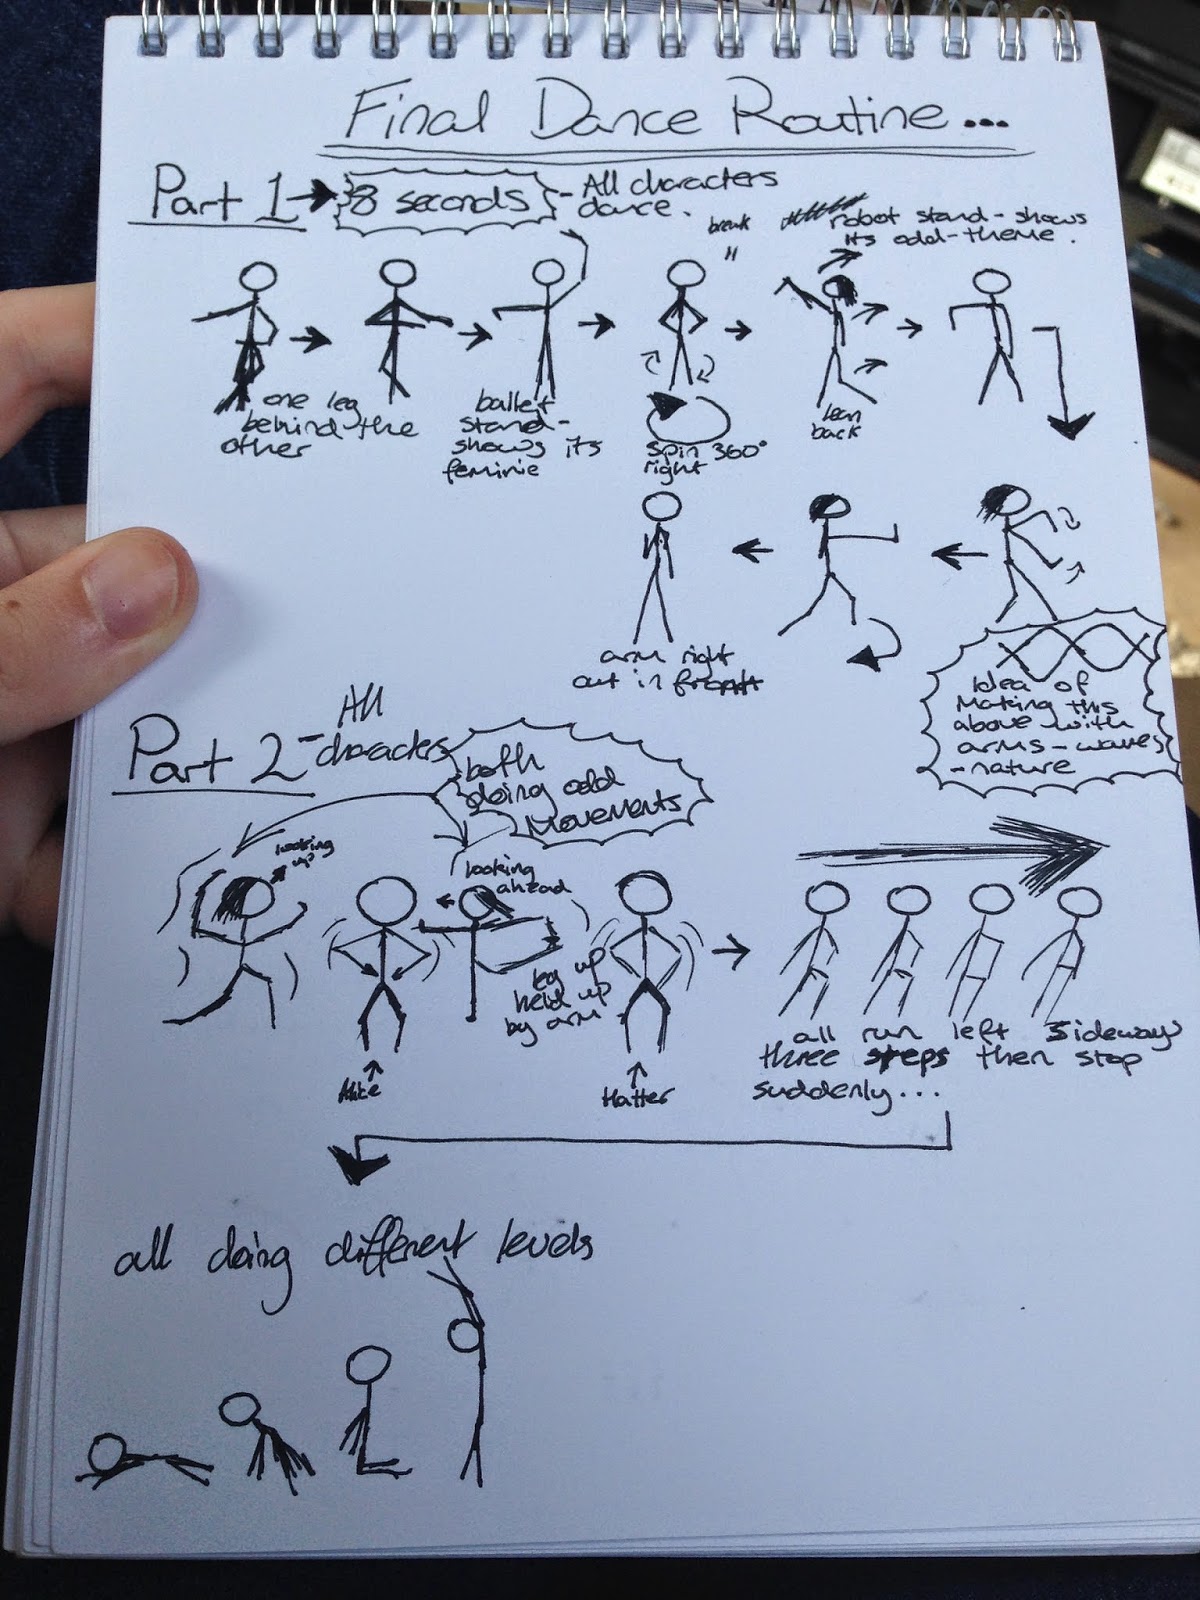 Final Dance Routine...
Part 1 → 8 seconds - All characters
dance.
break
"
robot stand - shows
its odd - theme.
one leg
behind the
other
ballet
stand -
shows its
feminie
spin 360°
right
lean
back
arm right
out in front
Idea of
Making this
above with
arms - waves
- nature
Part 2 - All
characters
both
doing odd
Movements
looking
up
looking
ahead
leg up
held up
by arm
Hatter
all run left sideways
three steps then stop
suddenly...
all doing different levels